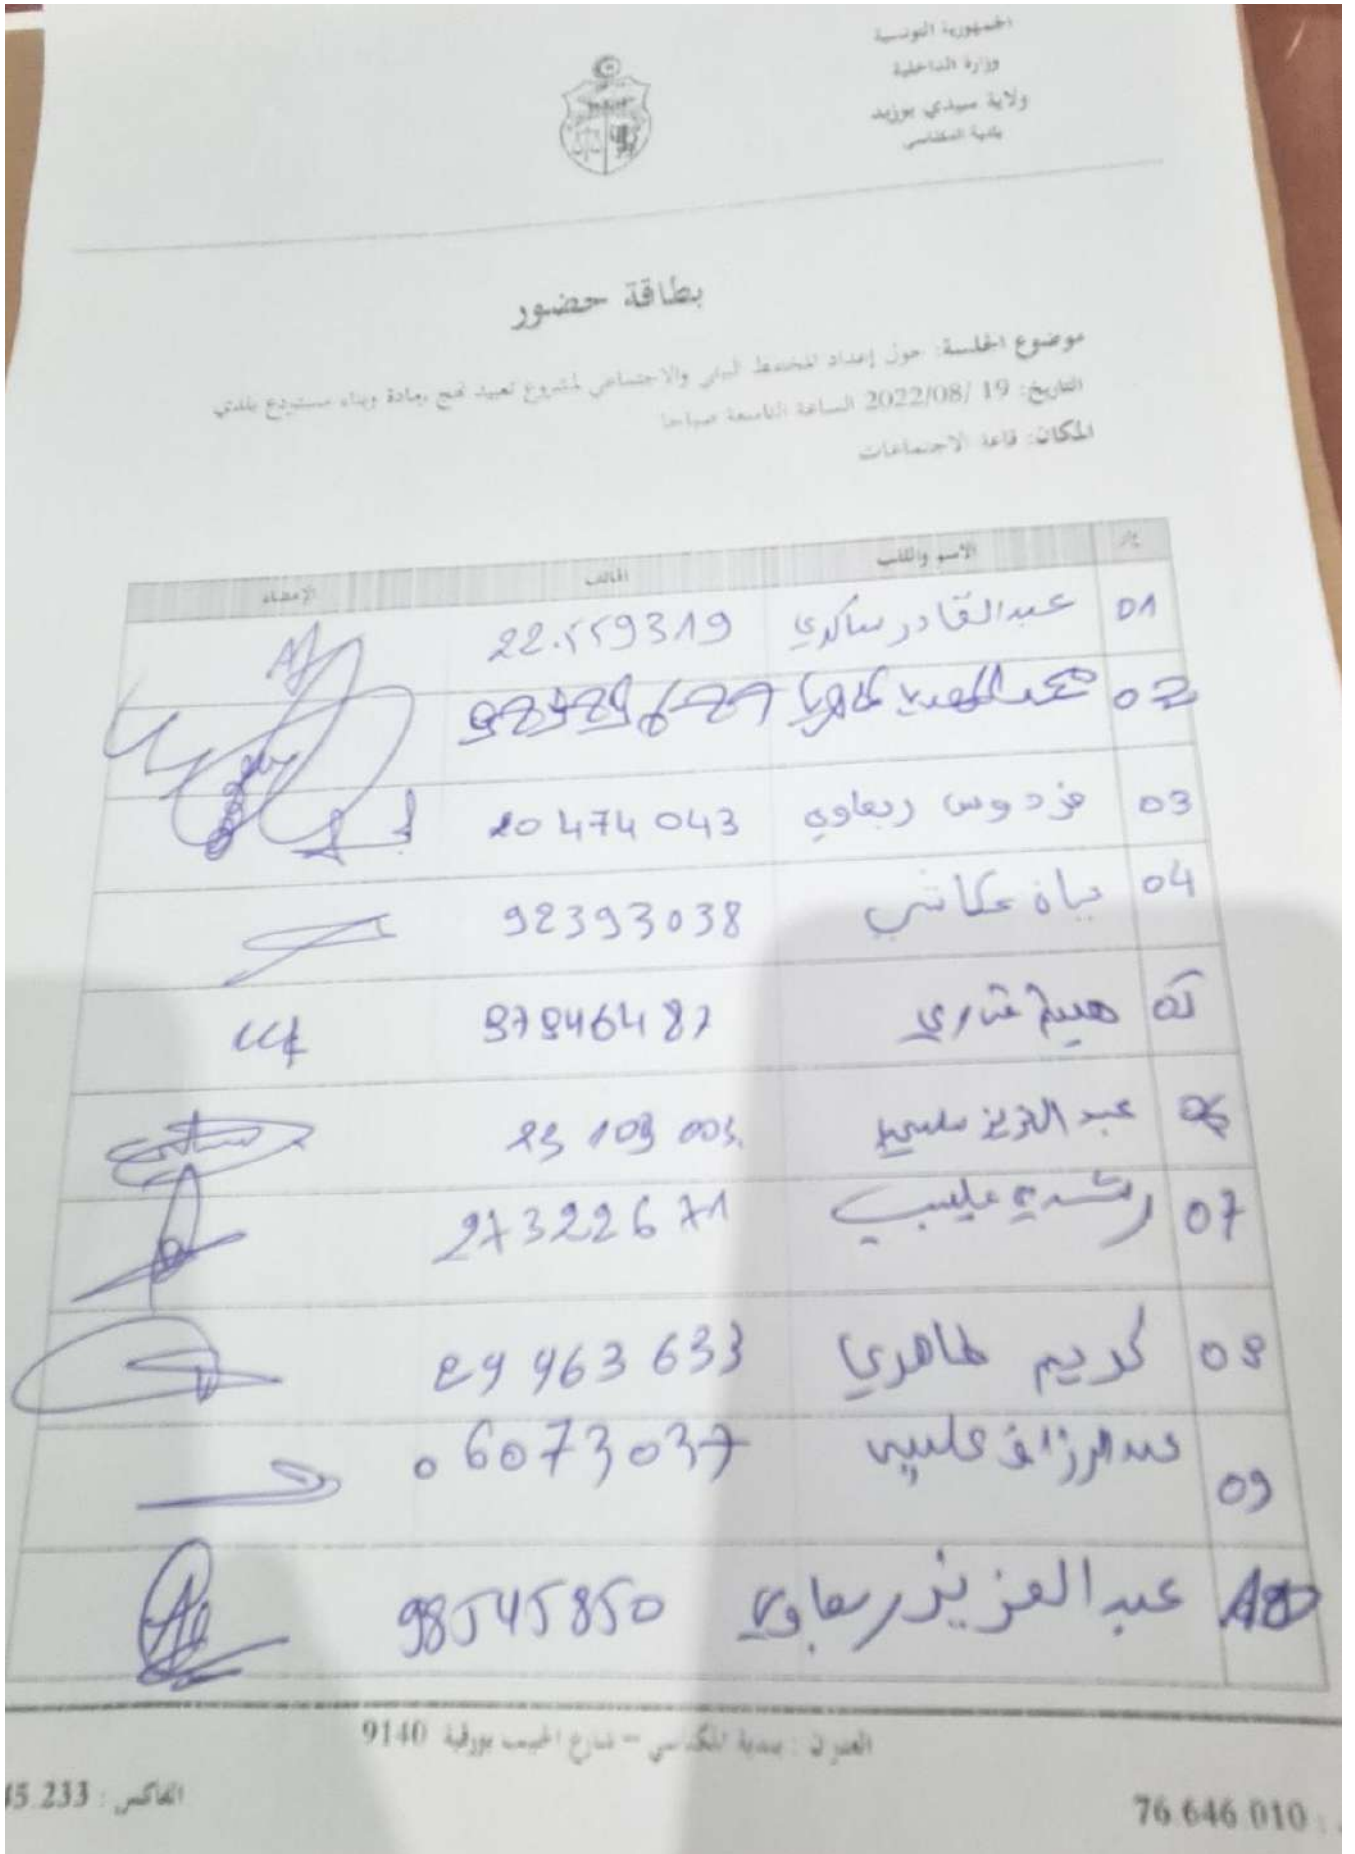 الجمهورية التونسية
وزارة الداخلية
ولاية سيدي بوزيد
بلدية المكناسي
بطاقة حضور
موضوع الجلسة: حول إعداد المخطط البيئي والاجتماعي لمشروع تعبيد نهج رمادة وبناء مستودع بلدي
التاريخ: 19 /2022/08 الساعة التاسعة صباحا
المكان: قاعة الاجتماعات
ع/ر الاسم واللقب الهاتف الإمضاء
01 عبد القادر ساكري 22.559319
02 محمد المهدي طاهري
03 فردوس ربعاوي 20 474 043
04 عكاشي 92393038
05 هيثم 97946487
06 عبد العزيز 23 109 003
07 27322671
08 كريم طاهري 29 963 633
09 عبد الرزاق 06073037
10 عبد العزيز ربعاوي 98545850
العنوان : بلدية المكناسي – شارع الحبيب بورقيبة 9140
76.646.010 :
الفاكس : 45.233